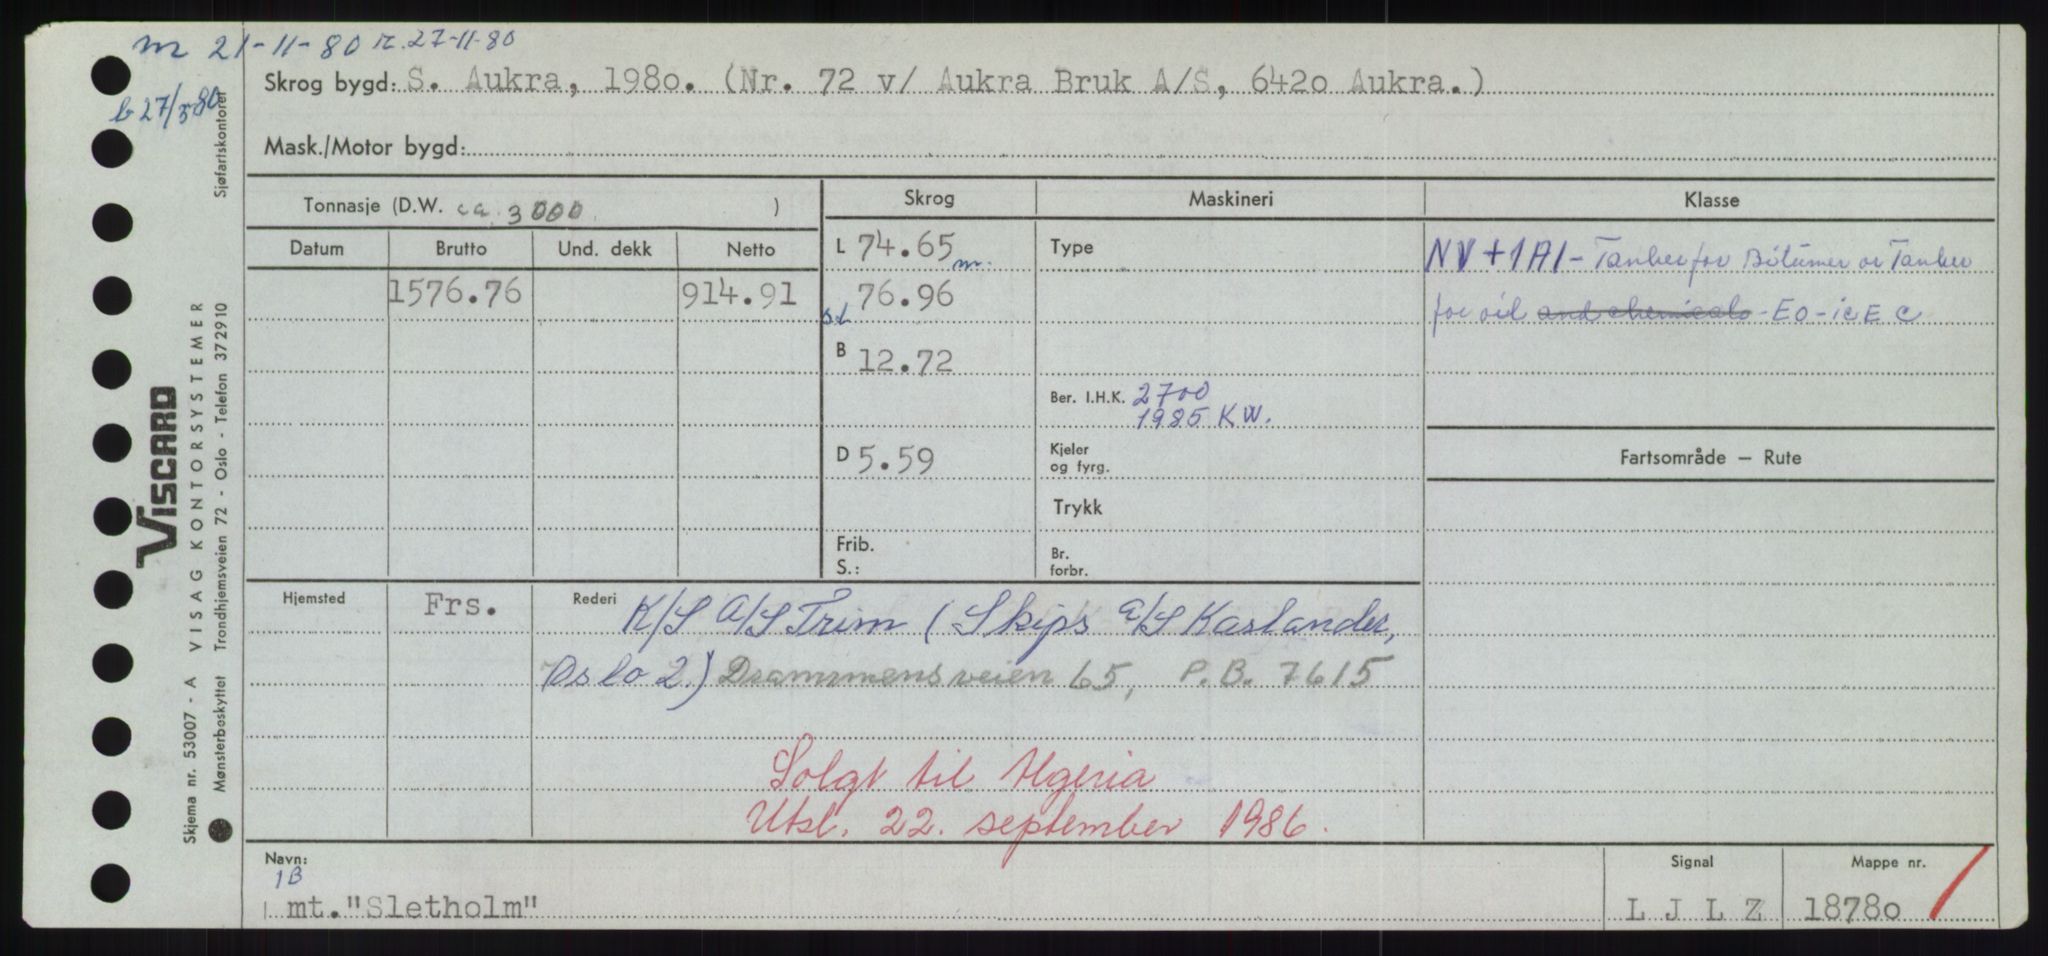 m 21-11-80 r. 27-11-80
b 27/5 80
Skrog bygd: S. Aukra, 1980. (Nr. 72 v/ Aukra Bruk A/S, 6420 Aukra.)
Mask./Motor bygd:
Tonnasje (D.W. ca. 3000 )
Skrog Maskineri Klasse
Datum Brutto Und. dekk Netto
1576.76 914.91
L 74.65 m.
76.96
B 12.72
D 5.59
Frib.
S.:
Type
Ber. I.H.K. 2700
1985 KW.
Kjeler
og fyrg.
Trykk
Br.
forbr.
NV + 1A1 - Tanker for Bitumen or Tanker
for oil and chemicals - EO - ICE C
Fartsområde — Rute
Hjemsted Frs. Rederi K/S A/S Trim (Skips A/S Kaslander,
Oslo 2.) Drammensveien 65, P.B. 7615
Solgt til Algeria
Utsl. 22. september 1986.
Navn: Signal Mappe nr.
1B
mt. "Sletholm" L J L Z 18780
VISCARD
Skjema nr. 53007 - A VISAG KONTORSYSTEMER
Mønsterbeskyttet Trondhjemsveien 72 - Oslo - Telefon 372910 Sjøfartskontoret